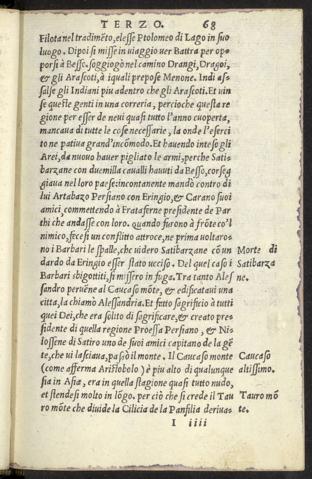 TERZO. 68
Filota nel tradimẽto, elesse Ptolomeo di Lago in suo
luogo. Dipoi si misse in uiaggio uer Battra per op=
porsi à Besso. soggiogò nel camino Drangi, Dragoi,
& gli Arascoti, à iquali prepose Menone. Indi as=
salse gli Indiani piu adentro che gli Arascoti. Et uin
se queste genti in una correria, percioche questa re
gione per esser de neui quasi tutto l'anno cuoperta,
mancaua di tutte le cose necessarie, la onde l'eserci
to ne patiua grand'incõmodo. Et hauendo inteso gli
Arei, da nuouo hauer pigliato le armi, perche Sati=
barzane con duemilla caualli hauuti da Besso, corseg
giaua nel loro paese: incontanente mandò contro di
lui Artabazo Persiano con Eringio, & Carano suoi
amici, commettendo à Frataferne presidente de Par
thi che andasse con loro. quando furono à frõte co'l
nimico, fecesi un conflitto attroce, ne prima uoltaro=
no i Barbari le spalle, che uidero Satibarzane cõ un
dardo da Eringio esser stato ucciso. Del quel caso i
Barbari sbigottiti, si missero in fuga. Tra tanto Ales
sandro peruẽne al Caucaso mõte, & edificataui una
citta, la chiamò Alessandria. Et fatto sagrificio à tutti
quei Dei, che era solito di sagrificare, & creato pre=
sidente di quella regione Proessa Persiano, & Ni=
lossene di Satiro uno de suoi amici capitano de la gẽ
te, che ui lasciaua, passò il monte. Il Caucaso monte
(come afferma Aristobolo) è piu alto di qualunque
sia in Asia, era in quella stagione quasi tutto nudo,
et stendesi molto in lõgo. per ciò che si crede il Tau
ro mõte che diuide la Cilicia de la Panfilia deriuas=
I iiii
Morte di
Satibarza
ne.
Caucaso
altissimo.
Tauro mõ
te.